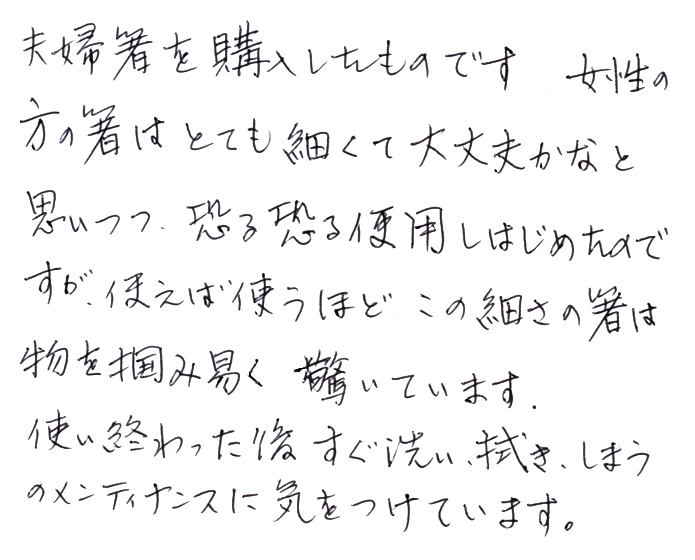 夫婦箸を購入したものです 女性の
方の箸はとても細くて大丈夫かなと
思いつつ、恐る恐る使用しはじめたので
すが、使えば使うほど この細さの箸は
物を掴み易く 驚いています.
使い終わった後すぐ洗い、拭き、しまう
のメンティナンスに気をつけています。